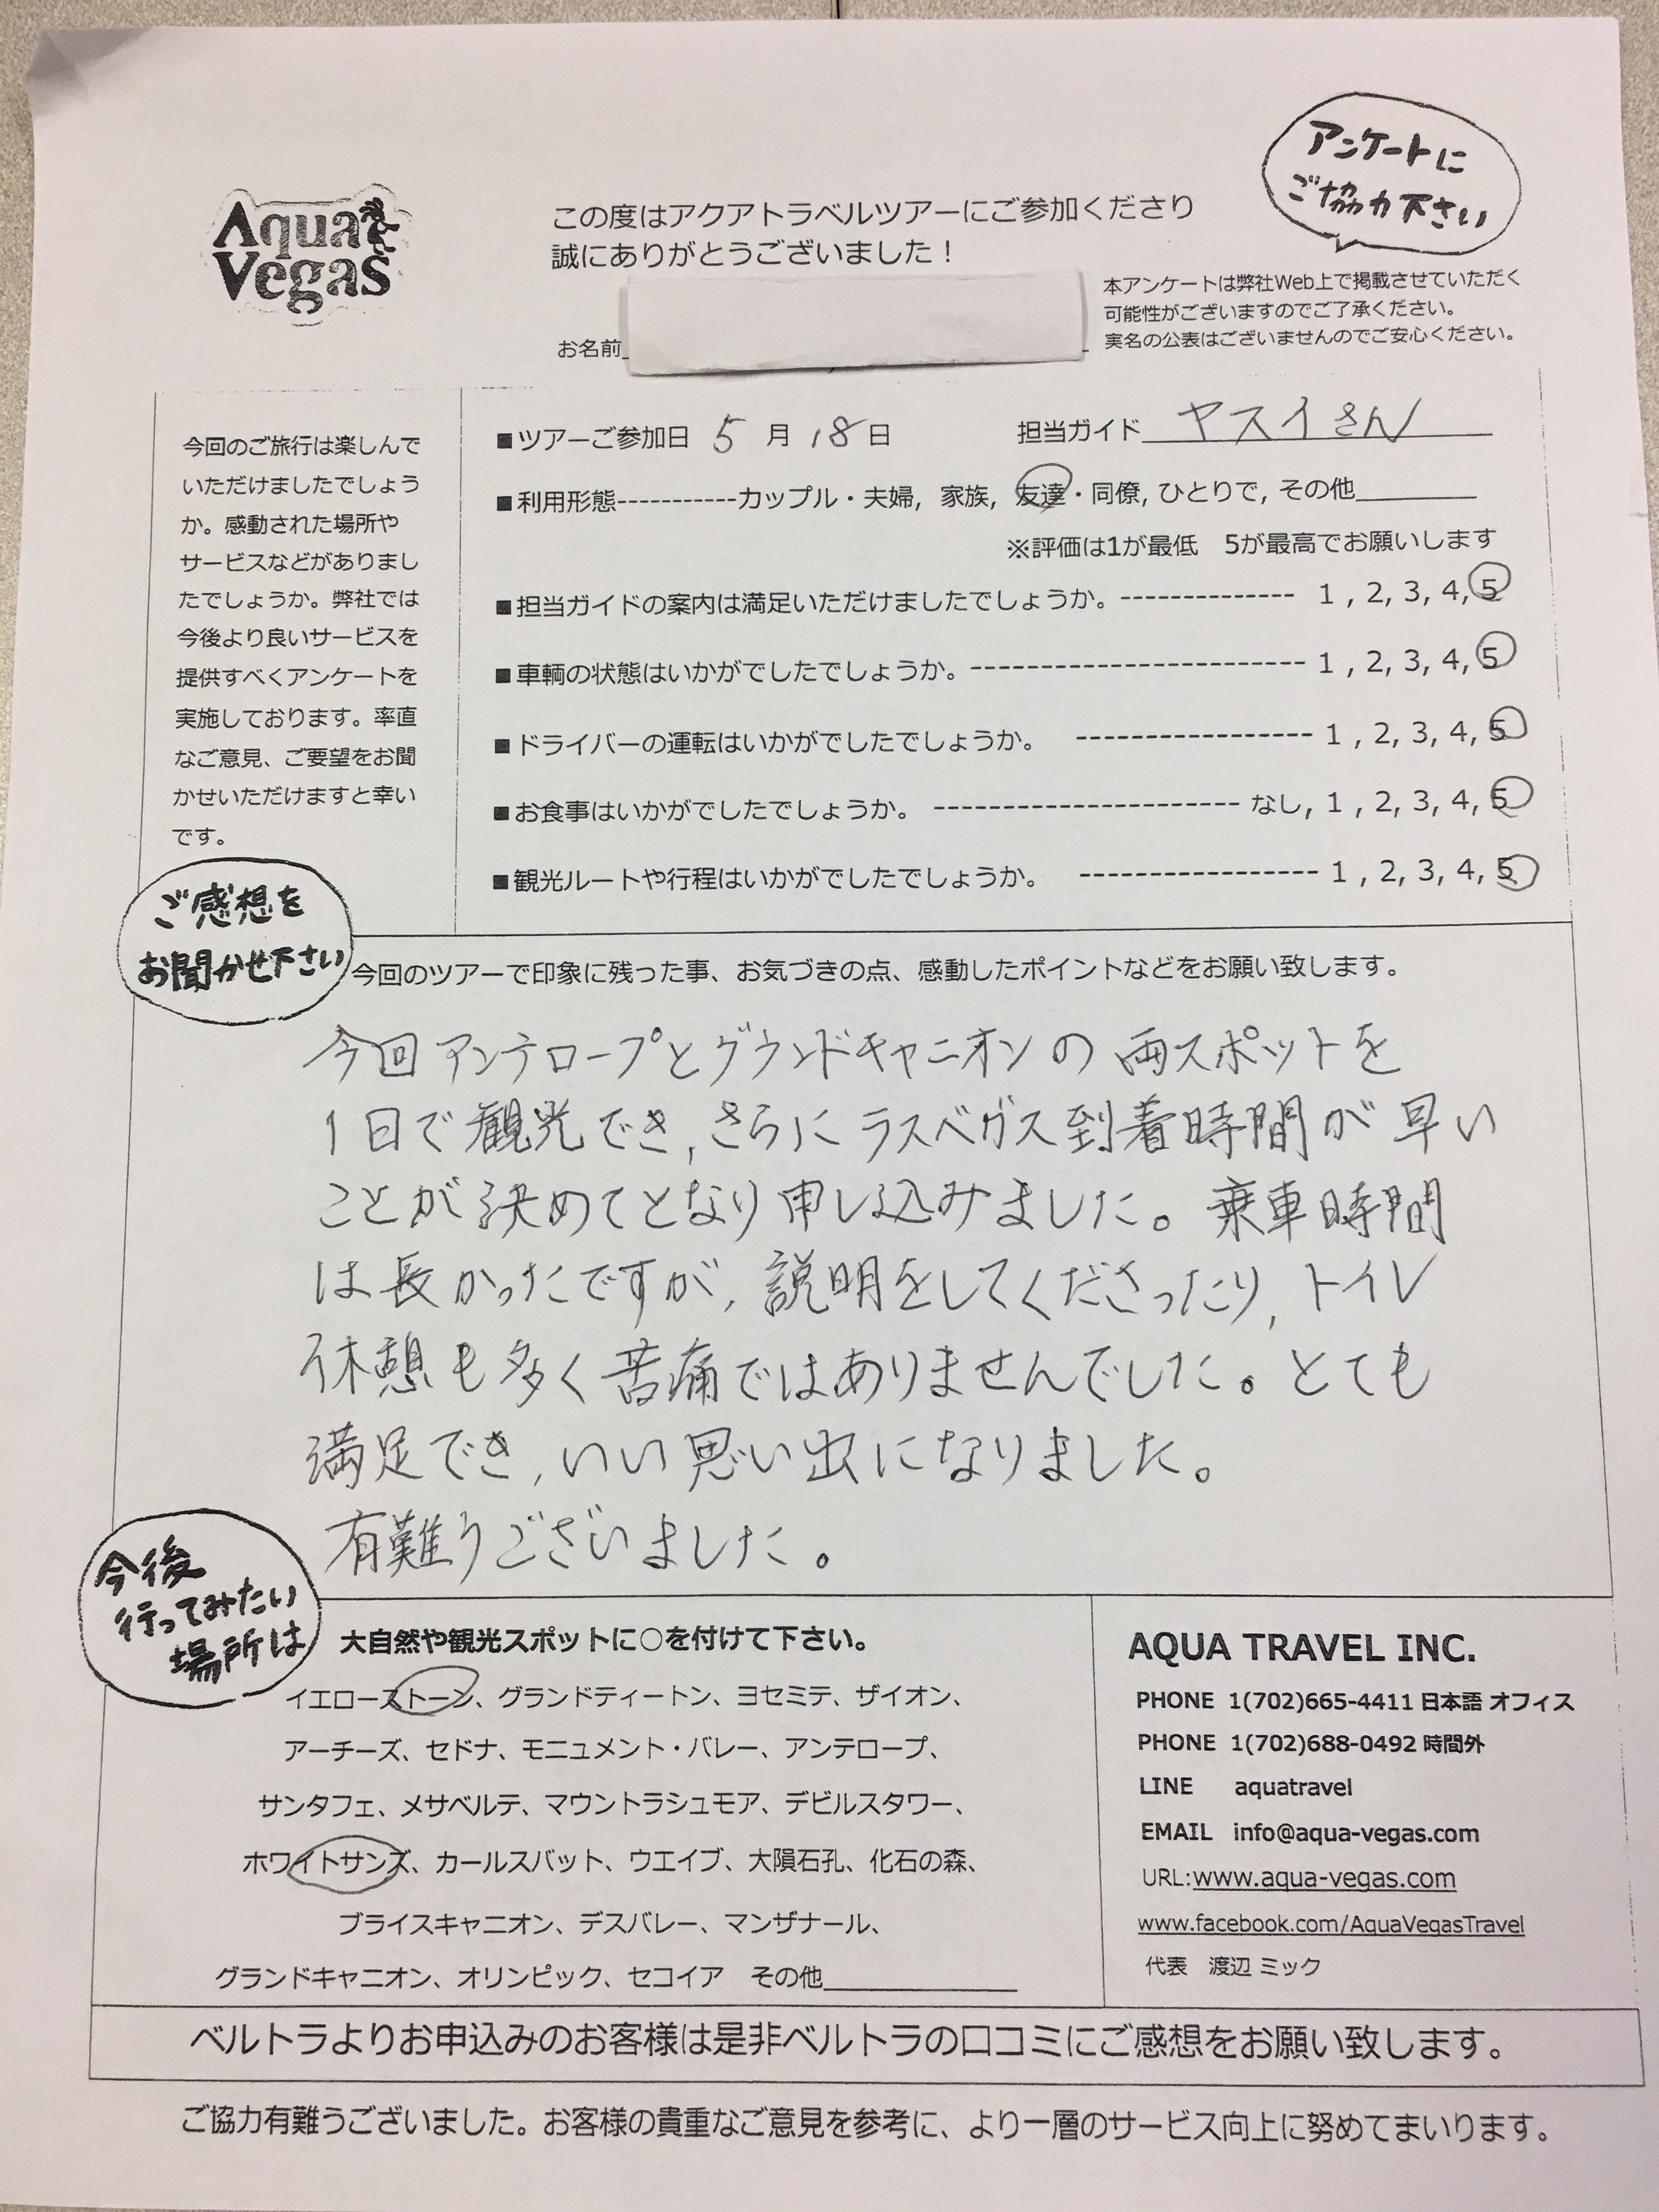 アンケートに
ご協力下さい
Aqua
Vegas
この度はアクアトラベルツアーにご参加くださり
誠にありがとうございました！
本アンケートは弊社Web上で掲載させていただく
可能性がございますのでご了承ください。
実名の公表はございませんのでご安心ください。
お名前
今回のご旅行は楽しんで
いただけましたでしょう
か。感動された場所や
サービスなどがありまし
たでしょうか。弊社では
今後より良いサービスを
提供すべくアンケートを
実施しております。率直
なご意見、ご要望をお聞
かせいただけますと幸い
です。
■ツアーご参加日 5 月 18 日 担当ガイド ヤスイさん
■利用形態-----------カップル・夫婦, 家族, 友達・同僚, ひとりで, その他
※評価は1が最低 5が最高でお願いします
■担当ガイドの案内は満足いただけましたでしょうか。-------------- 1 , 2, 3, 4, 5
■車輌の状態はいかがでしたでしょうか。--------------------------- 1 , 2, 3, 4, 5
■ドライバーの運転はいかがでしたでしょうか。 ----------------- 1 , 2, 3, 4, 5
■お食事はいかがでしたでしょうか。 ----------------------- なし, 1 , 2, 3, 4, 5
■観光ルートや行程はいかがでしたでしょうか。 ----------------- 1 , 2, 3, 4, 5
ご感想を
お聞かせ下さい
今回のツアーで印象に残った事、お気づきの点、感動したポイントなどをお願い致します。
今回アンテロープとグランドキャニオンの両スポットを
1日で観光でき,さらにラスベガス到着時間が早い
ことが決めてとなり申し込みました。乗車時間
は長かったですが,説明をしてくださったり,トイレ
休憩も多く苦痛ではありませんでした。とても
満足でき,いい思い出になりました。
有難うございました。
今後
行ってみたい
場所は
大自然や観光スポットに○を付けて下さい。
イエローストーン、グランドティートン、ヨセミテ、ザイオン、
アーチーズ、セドナ、モニュメント・バレー、アンテロープ、
サンタフェ、メサベルテ、マウントラシュモア、デビルスタワー、
ホワイトサンズ、カールスバット、ウエイブ、大隕石孔、化石の森、
ブライスキャニオン、デスバレー、マンザナール、
グランドキャニオン、オリンピック、セコイア その他
AQUA TRAVEL INC.
PHONE 1(702)665-4411 日本語 オフィス
PHONE 1(702)688-0492 時間外
LINE aquatravel
EMAIL info@aqua-vegas.com
URL:www.aqua-vegas.com
www.facebook.com/AquaVegasTravel
代表 渡辺 ミック
ベルトラよりお申込みのお客様は是非ベルトラの口コミにご感想をお願い致します。
ご協力有難うございました。お客様の貴重なご意見を参考に、より一層のサービス向上に努めてまいります。